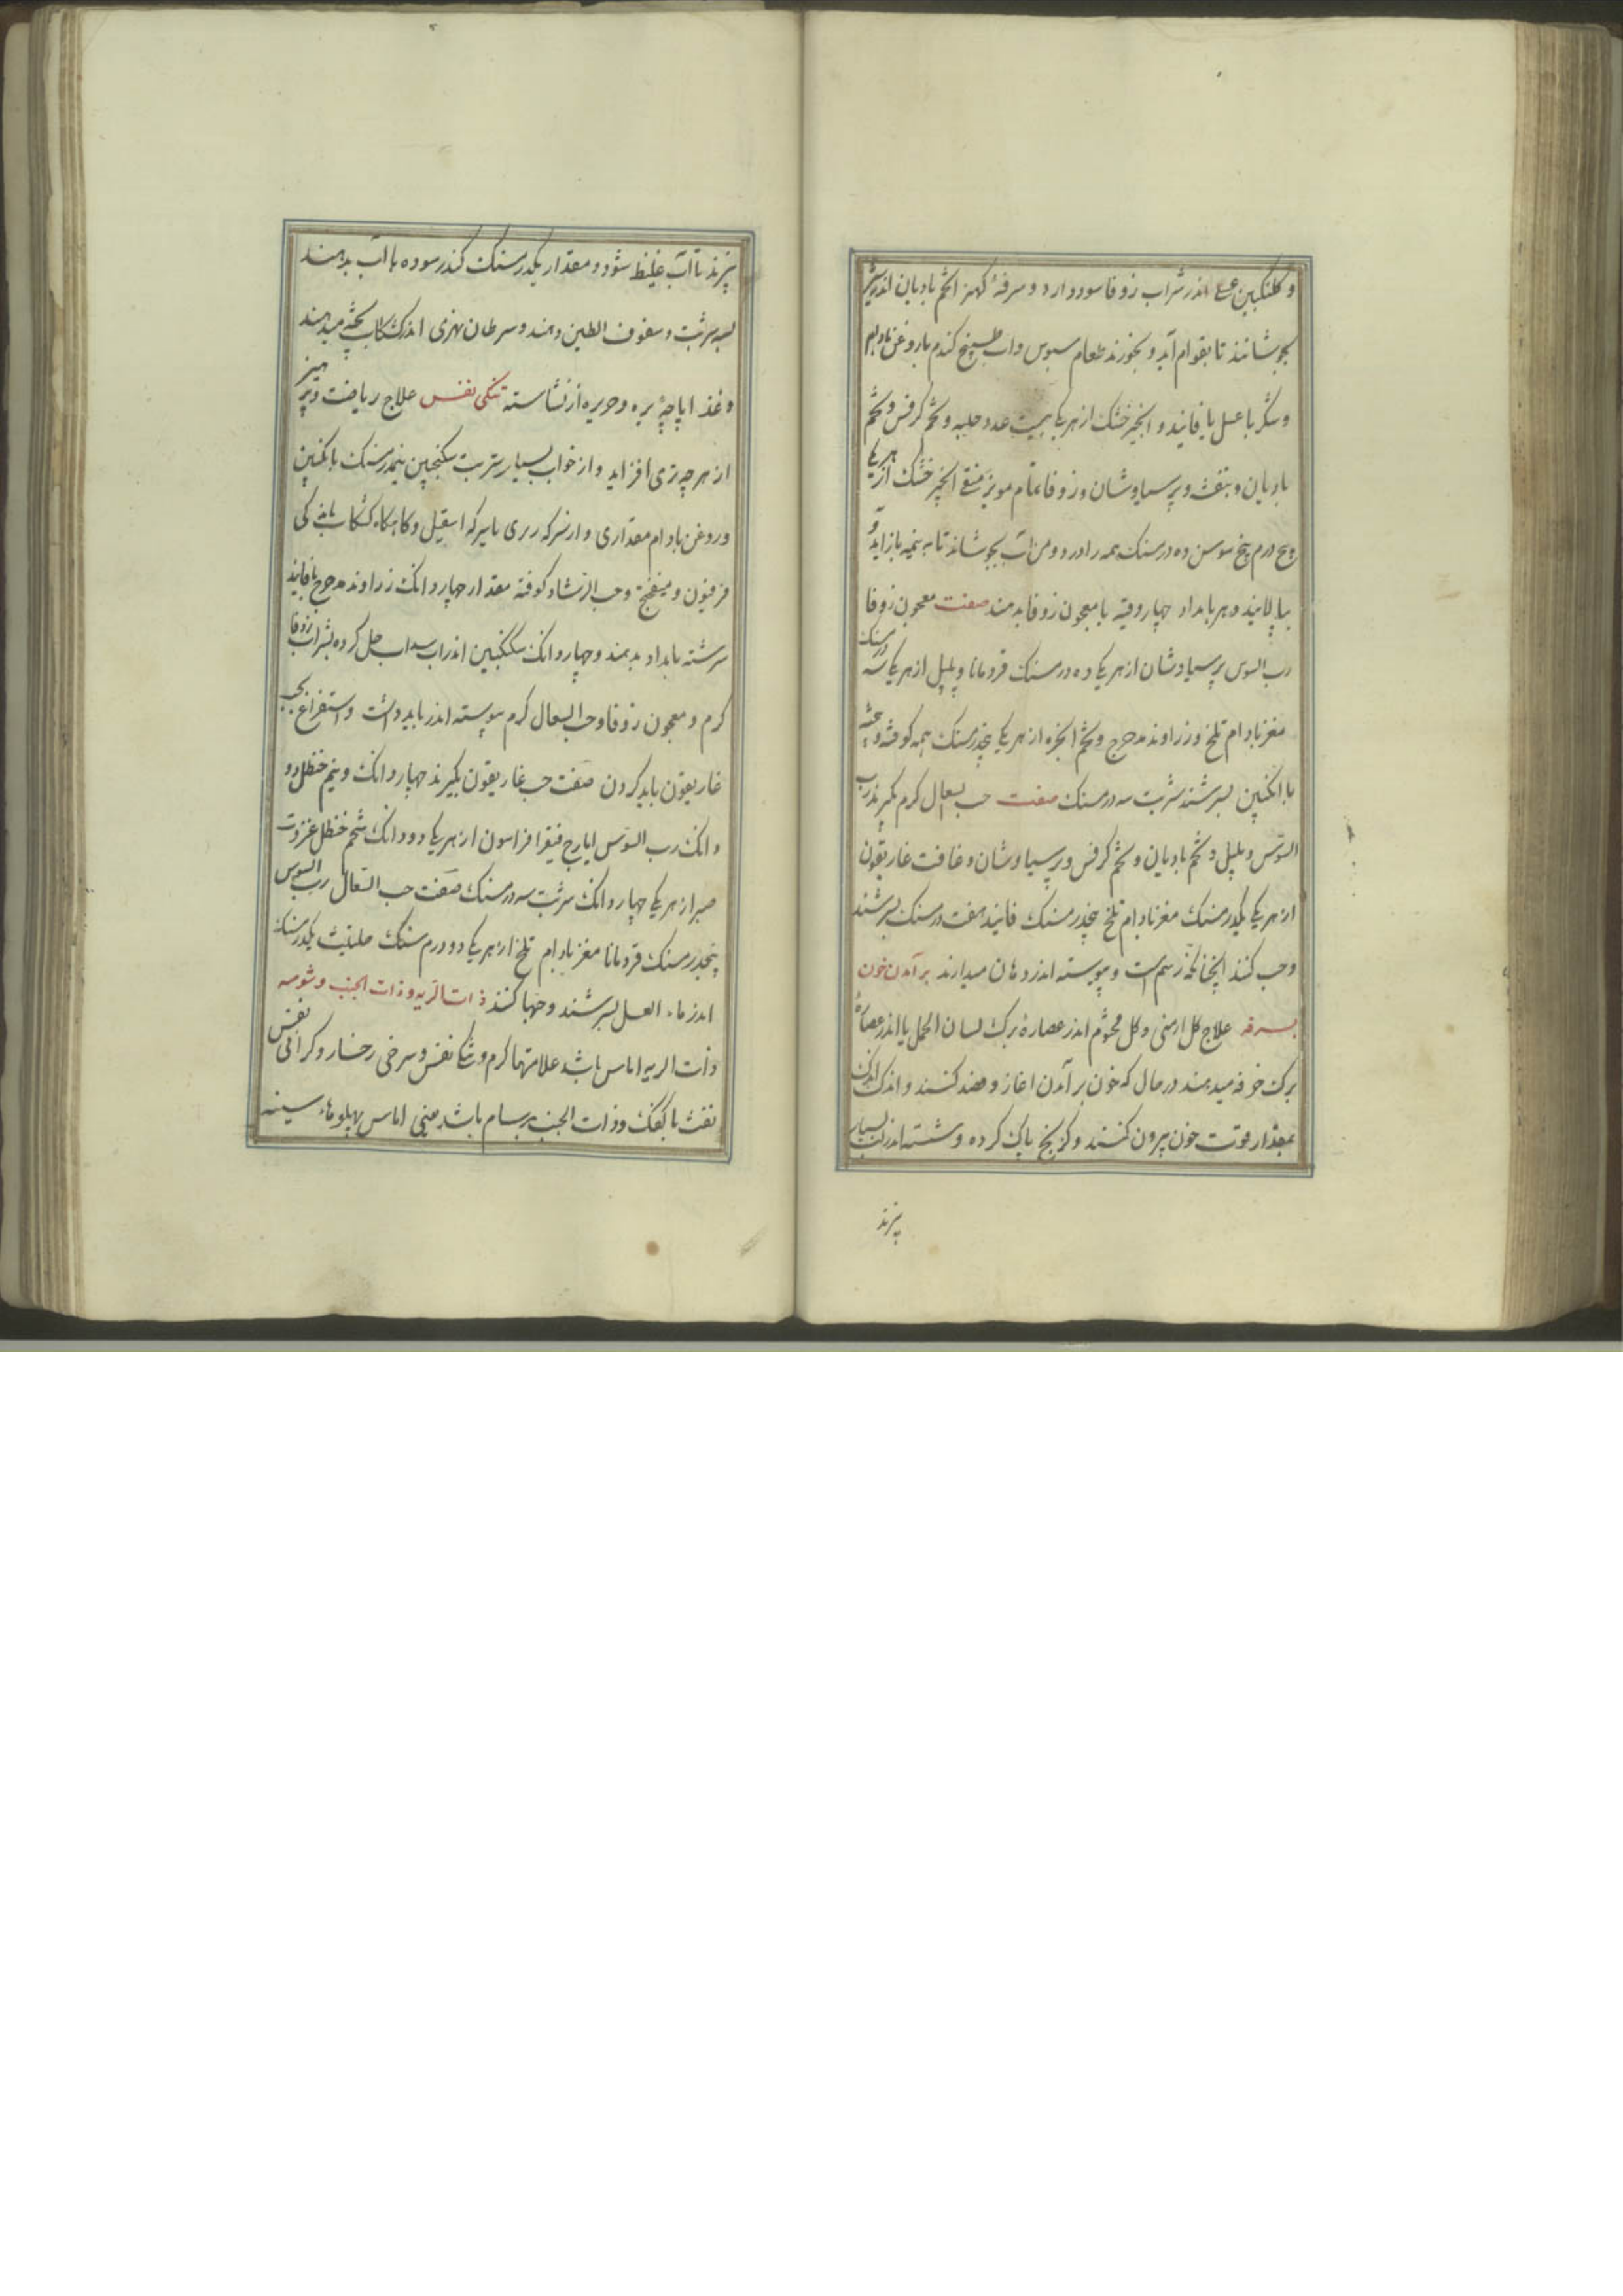 و گلنگبین عسلی اندر شراب زوفا سود دارد و سرفهٔ کهنرا تخم بادیان اندر شیر
بجوشانند تا بقوام آید و بخورند طعام سبوس واب طبیخ کندم با روغن بادام
و شکر یا عسل یا فانید و انجیر خشک از هر یکی بیست عدد حلبه و تخم کرفس و تخم
بادیان و بنفشه و پرسیاوشان و زوفا تمام مویز منقی انجیر خشک از هر یکی
پنج درم بیخ سوسن ده درمسنک همه را در دو من آب بجوشانند تا به نیمه باز اید و
بپالایند و هر بامداد چهار وقیه با معجون زوفا بدهند صفت معجون زوفا
رب السوس پرسیاوشان از هر یکی ده درمسنک قردمانا و پلپل از هر یکی سه درمسنک
مغز بادام تلخ و زراوند مدحرج و تخم انجره از هر یکی پنجدرمسنک همه کوفته و بیخته
با انکبین بسرشند شربت سه درمسنک صفت حب السعال کرم بکیرند رب
السوس و پلپل و تخم بادیان و تخم کرفس و پرسیاوشان و غافت غاریقون
از هر یکی یکدرمسنک مغز بادام تلخ پنجدرمسنک فانید هفت درمسنک بسرشند
و حب کنند انچنانکه رسم است و پیوسته اندر دهان میدارند بر آمدن خون
بسرفه علاج کل ارمنی و کل مختوم اندر عصارهٔ برک لسان الحمل یا اندر عصارهٔ
برک خرفه میدهند در حال که خون بر آمدن اغاز و فصد کنند و اندک اندک
بمقدار قوت خون بیرون کنند و کزبخ پاک کرده و شسته اندر آب بسیار
پزند
پزند تا آب غلیظ شود و مقدار یکدرمسنک کندر سوده با آب بدهند
بسه شربت و سفوف الطین دهند و سرطان نهری اندر کشکاب پخته میدهند
و غذا پاچهٔ بره و حریره از نشاسته تنکی نفس علاج ریاضت و پرهیز
از هر چه تری افزاید و از خواب بسیار شربت سکنجبین نیمدرمسنک با انکبین
و روغن بادام مقداری و از سرکه یا سرکه اسقیل و کاه کاه کشکاب
فرفیون و میفختج و حب الرشاد کوفته مقدار چهار دانک زراوند مدحرج با فانید
سرشته بامداد بدهند و چهار دانک سکنکبین اندر اب سداب حل کرده بشراب زوفا
کرم و معجون زوفا و حب السعال کرم پیوسته اندر باید داشت و استفراغ بحب
غاریقون باید کردن صفت حب غاریقون بکیرند چهار دانک و نیم حنظل دو
دانک رب السوس ایارج فیقرا فراسون از هر یکی دو دانک شحم حنظل عنزروت
صبر از هر یکی چهار دانک شربت سه درمسنک صفت حب السعال رب السوس
پنجدرمسنک قردمانا مغز بادام تلخ از هر یکی دو درم سنک حلتیت یکدرمسنک
اندر ماء العسل بسرشند و حبها کنند ذات الریه و ذات الجنب و شوصه
ذات الریه اماس باشد علامتها کرم و تنکی نفس و سرخی رخسار و کرانی نفس
نفث با کفک و ذات الجنب برسام باشد یعنی اماس پهلو ها سینه